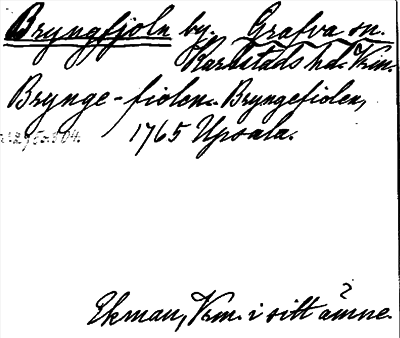 Bryngfjoln by. Grafva sn.
Karlstads hd. Vrm.
Brynge-fiolen. Bryngefiolen,
1765 Upsala.
?
Ekman, Vrm. i sitt ämne.